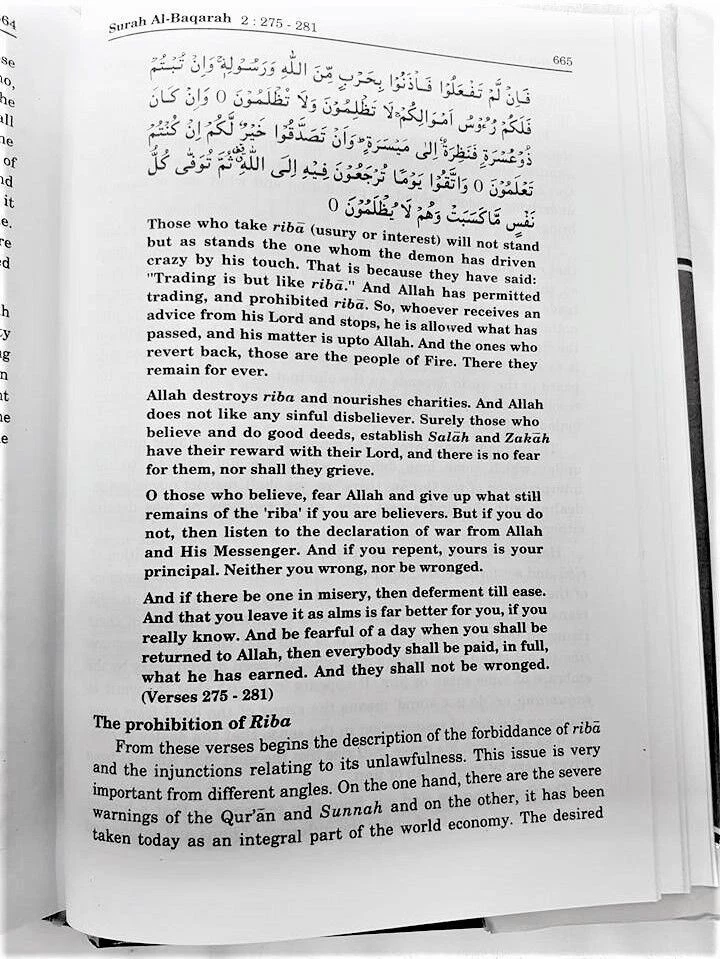 Surah Al-Baqarah 2 : 275 - 281
665
فَاِنْ لَّمْ تَفْعَلُوْا فَاْذَنُوْا بِحَرْبٍ مِّنَ اللّٰهِ وَرَسُوْلِهٖ ۚ وَاِنْ تُبْتُمْ
فَلَكُمْ رُءُوْسُ اَمْوَالِكُمْ ۚ لَا تَظْلِمُوْنَ وَلَا تُظْلَمُوْنَ 0 وَاِنْ كَانَ
ذُوْ عُسْرَةٍ فَنَظِرَةٌ اِلٰى مَيْسَرَةٍ ؕ وَاَنْ تَصَدَّقُوْا خَيْرٌ لَّكُمْ اِنْ كُنْتُمْ
تَعْلَمُوْنَ 0 وَاتَّقُوْا يَوْمًا تُرْجَعُوْنَ فِيْهِ اِلَى اللّٰهِ ۗ ثُمَّ تُوَفّٰى كُلُّ
نَفْسٍ مَّا كَسَبَتْ وَهُمْ لَا يُظْلَمُوْنَ 0
Those who take ribā (usury or interest) will not stand
but as stands the one whom the demon has driven
crazy by his touch. That is because they have said:
"Trading is but like ribā." And Allah has permitted
trading, and prohibited ribā. So, whoever receives an
advice from his Lord and stops, he is allowed what has
passed, and his matter is upto Allah. And the ones who
revert back, those are the people of Fire. There they
remain for ever.
Allah destroys riba and nourishes charities. And Allah
does not like any sinful disbeliever. Surely those who
believe and do good deeds, establish Salāh and Zakāh
have their reward with their Lord, and there is no fear
for them, nor shall they grieve.
O those who believe, fear Allah and give up what still
remains of the 'riba' if you are believers. But if you do
not, then listen to the declaration of war from Allah
and His Messenger. And if you repent, yours is your
principal. Neither you wrong, nor be wronged.
And if there be one in misery, then deferment till ease.
And that you leave it as alms is far better for you, if you
really know. And be fearful of a day when you shall be
returned to Allah, then everybody shall be paid, in full,
what he has earned. And they shall not be wronged.
(Verses 275 - 281)
The prohibition of Riba
From these verses begins the description of the forbiddance of ribā
and the injunctions relating to its unlawfulness. This issue is very
important from different angles. On the one hand, there are the severe
warnings of the Qur'ān and Sunnah and on the other, it has been
taken today as an integral part of the world economy. The desired